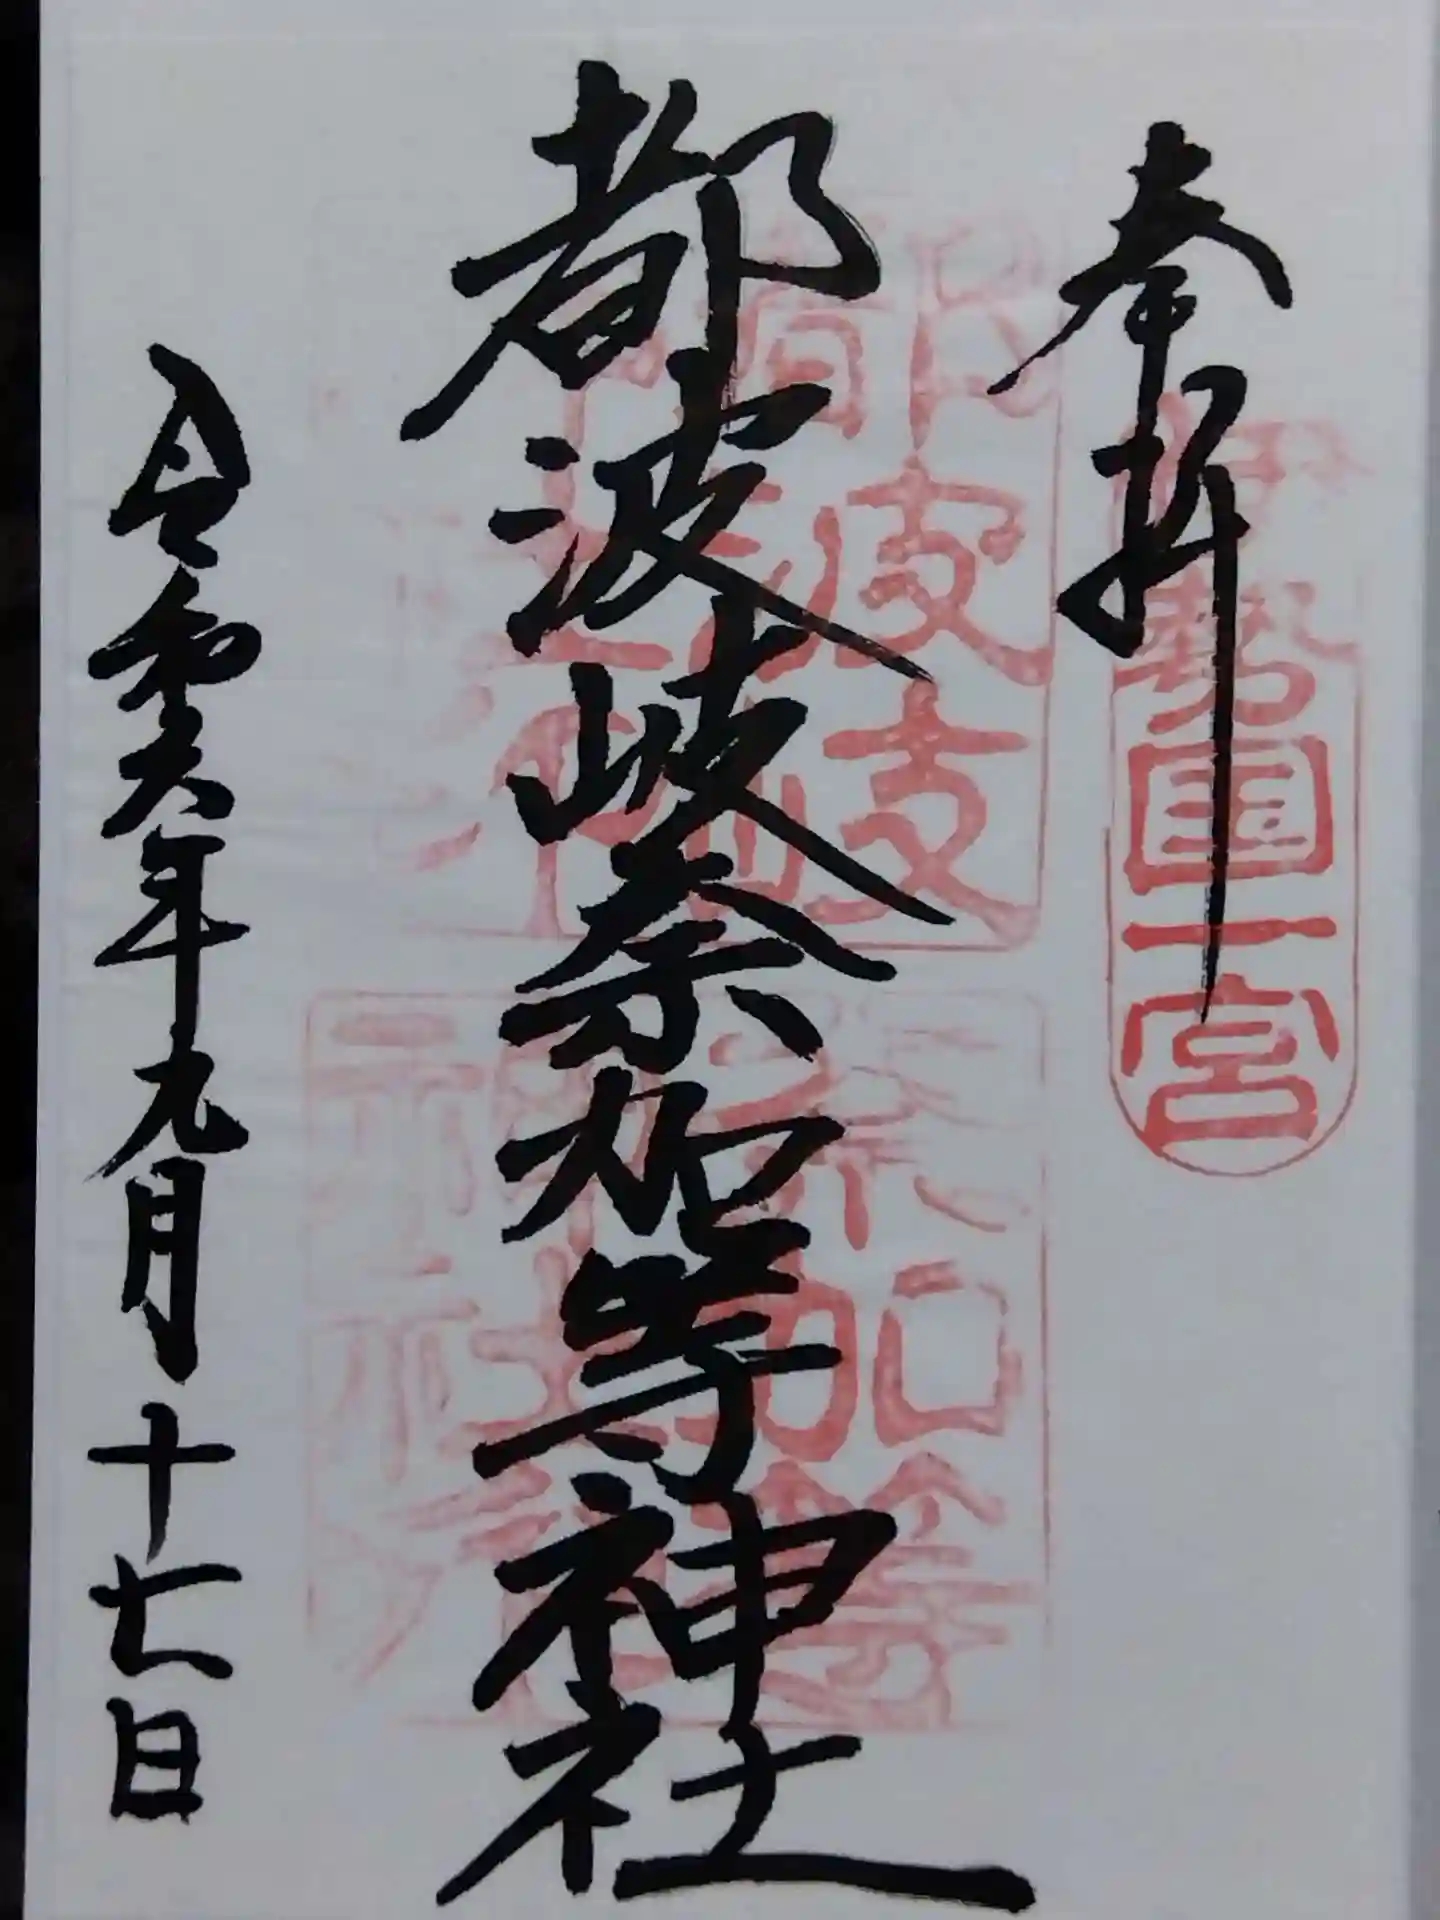 奉拝
伊勢国一宮
都波岐奈加等神社
令和六年九月十七日